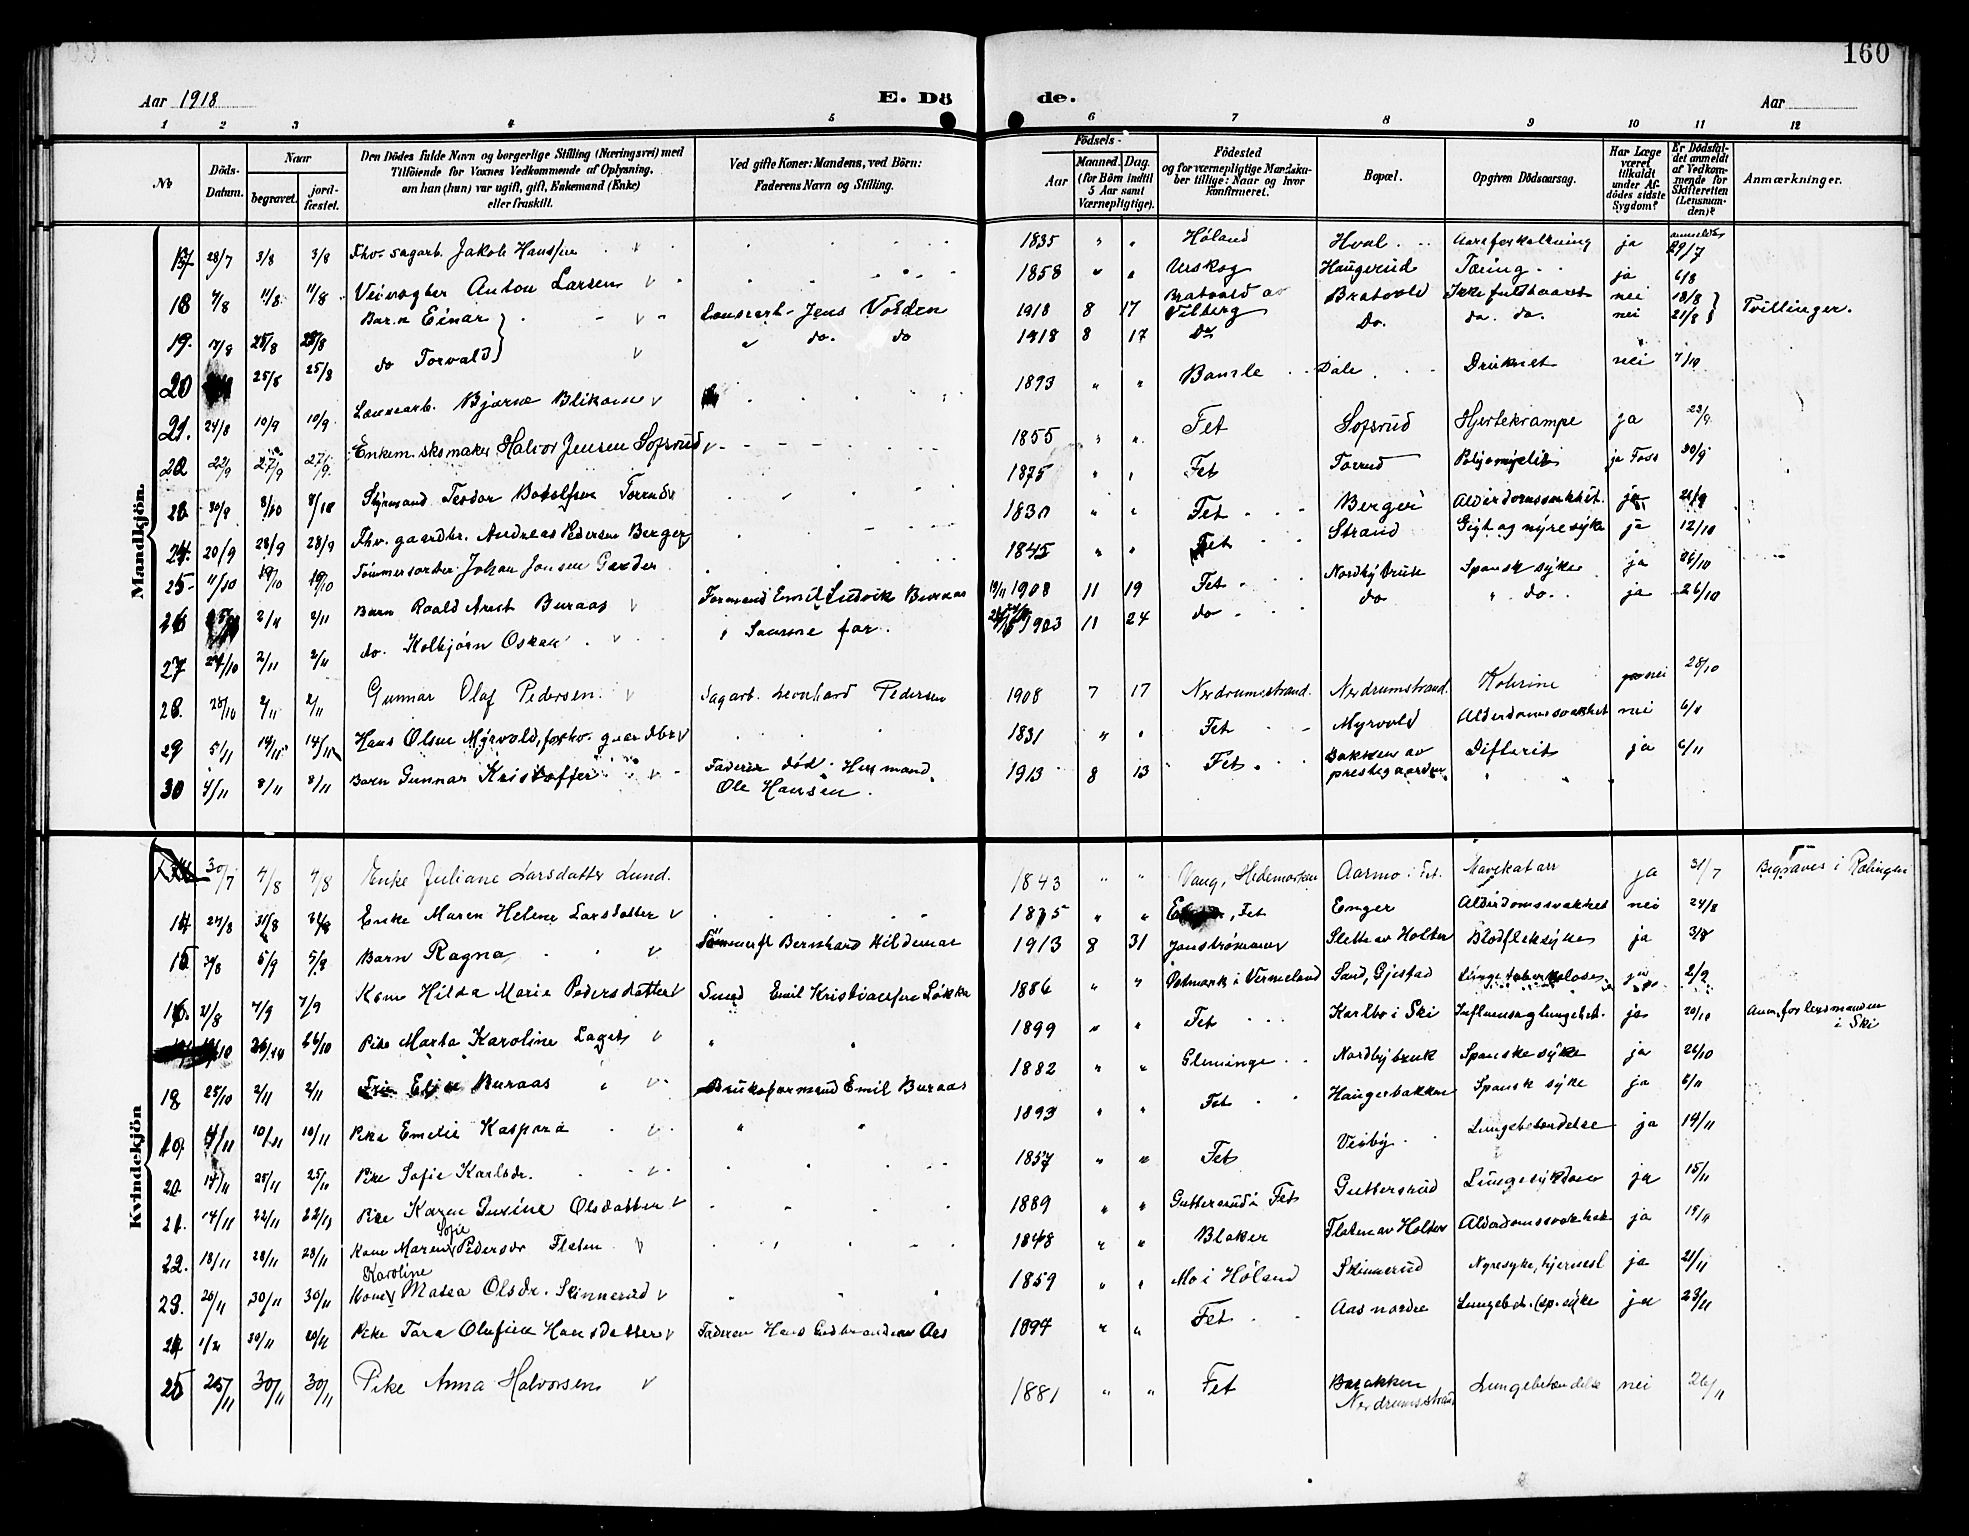 160
Aar 1918 E. Dö de. Aar
1 2 3 4 5 6 7 8 9 10 11 12
No Döds-Datum. Naar begravet. jordfæstet. Den Dödes fulde Navn og borgerlige Stilling (Næringsvei) med Tilföiende for Voxnes Vedkommende af Oplysning, om han (hun) var ugift, gift, Enkemand (Enke) eller fraskilt. Ved gifte Koner: Mandens, ved Börn: Faderens Navn og Stilling. Födsels- Aar Maaned. Dag. (for Börn indtil 5 Aar samt Værnepligtige). Födested og for værnepligtige Mandskaber tillige: Naar og hvor konfirmeret. Bopæl. Opgiven Dödsaarsag. Har Læge været tilkaldt under Afdödes sidste Sygdom? Er Dödsfaldet anmeldt af Vedkommende for Skifteretten (Lensmanden)? Anmærkninger.
Mandkjön.
17 28/7 3/8 3/8 Fhv. sagarb. Jakob Hanssen 1835 " " Høland Hval Aareforkalkning ja anmeldt 29/7
18 4/8 11/8 11/8 Veivogter Anton Larsen v 1858 " " Urskog Haugerud Tæring ja 6/8
19. 17/8 25/8 25/8 Barn Einar v Lønsarb. Jens Volden 1918 8 17 Bratvold av Vilberg Bratvold Ikke fuldbaaret nei 18/8 Tvillinger.
20 25/8 25/8 do Torvald v " do. do 1918 8 17 Do Do. do. do. nei 21/8
21. 24/8 10/9 10/9 Lønsarb. Bjarne Blikom v 1893 " " Bamle Dale Druknet nei 7/10
22 22/9 27/9 27/9. Enkem. skomaker Halvor Jensen Sofsrud v 1855 " " Fet Sofsrud Hjertekrampe ja 23/9
23 30/9 8/10 8/10 Styrmand Teodor Botolfsen Torrud v 1875 " " Fet Torrud Poliomyelit ja Foss 30/9
24. 20/9 28/9 28/9 Fhv. gaardbr. Andreas Pedersen Berger 1830 " " Fet Berger Alderdomssvakhet. ja 21/9
25 11/10 19/10 19/10 Tømmersorter Johan Jansen Garder 1845 " " Fet Strand Gigt og nyresyke ja 12/10
26 2/11 2/11 Barn Roald Arent Buraas v Formand Emil Ludvik Buraas 1908 11 19 Fet Nordbybruk Spansk syke ja 26/10
27 24/10 2/11 2/11 do. Kolbjørn Oskar v " Samme far. 1903 11 24 do do " do. ja 26/10
28. 28/10 2/11 2/11 Gunnar Olaf Pedersen v Sagarb. Leonhard Pedersen 1908 7 17 Nerdrumsstrand. Nerdrumstrand. Kolerine nei 28/10
29 5/11 14/11 14/11 Hans Olsen Myrvold, forhv. gaardbr v 1831 " " Fet Myrvold Alderdomssvakhet nei 6/11
30 4/11 8/11 8/11 Barn Gunnar Kristoffer v Faderen død. Husmand Ole Hansen. 1913 8 13 Fet Bakken av prestegaarden Difterit ja 6/11
Kvindekjön
30/7 4/8 4/8 Enke Juliane Larsdatter Lund. 1843 " " Vang, Hedemarken Aarmo i Fet. Mavekatarr ja 31/7 Begraves i Rælingen
14 24/8 31/8 31/8 Enke Maren Helene Larsdatter v Fet Enger Alderdomssvakhet nei 24/8
15 30/8 5/9 5/9 Barn Ragna v Tømmerfl Bernhard Hildemar 1913 8 31 Slette av Holter Blodfleksyke ja 31/8
16. 31/8 7/9 7/9 Kone Hilda Marie Pedersdatter v Smed Emil Kristiansen Løkke 1886 " " Østmark i Vermeland Sand, Gjestad Lungetuberkulose ja 2/9
26/10 26/10 Pike Marta Karoline Lager v " " 1899 " " Fet Karlbo i Ski Influensa lungebet. ja 20/10 Anm. for lensmanden i Ski
18 25/10 2/11 2/11 Fru Elise Buraas v Bruksformand Emil Buraas 1882 " " Glemminge Nordbybruk Spanske syke ja 26/10
19. 4/11 10/11 10/11 Pike Emelie Kaspara v " " 1893 " " Fet Haugerbakken Spansk syke ja 6/11
20. 14/11 25/11 25/11 Pike Sofie Karlsdr. v 1857 " " Fet Veiby Lungebetendelse ja 14/11
21. 14/11 22/11 22/11 Pike Karen Gusine Olsdatter v 1889 " " Guttersrud i Fet Guttersrud Lungesykdom ja 15/11
22. 18/11 28/11 28/11 Kone Maren Sofie Pedersdr Flaten v 1848 " " Blaker Flaten av Holter Alderdomssvakhet ja 19/11
23. 20/11 30/11 30/11 Kone Karoline Matea Olsdr. Skinnerud v 1859 " " Mo i Høland Skinnerud Nyresyke, hjernesl ja 21/11
24 30/11 30/11 Pike Tora Olufine Hansdatter v Faderen Hans Gudbrandsen Aas 1897 " " Fet Aas nordre Lungebet. (sp. syke ja 23/11
25 25/11 30/11 30/11 Pike Anna Halvorsen v 1881 " " Fet Barakken Nerdrumsstrand Lungebetændelse nei 26/11